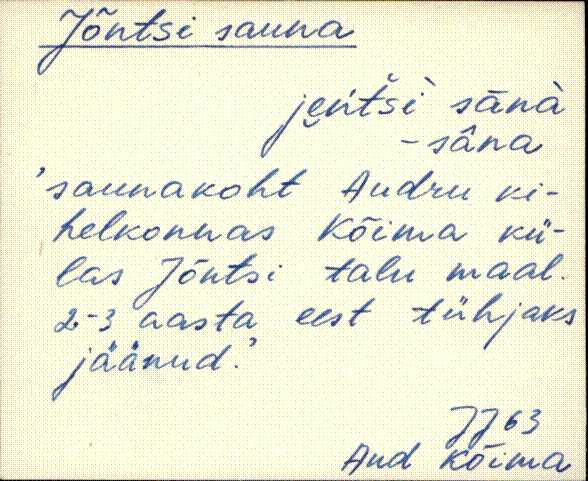 Jõntsi sauna
je̮ńtši sānà
- sâna
'saunakoht Audru ki-
helkonnas Kõima kü-
las Jõntsi talu maal.
2-3 aasta eest tühjaks
jäänud.'
JJ 63
Aud Kõima